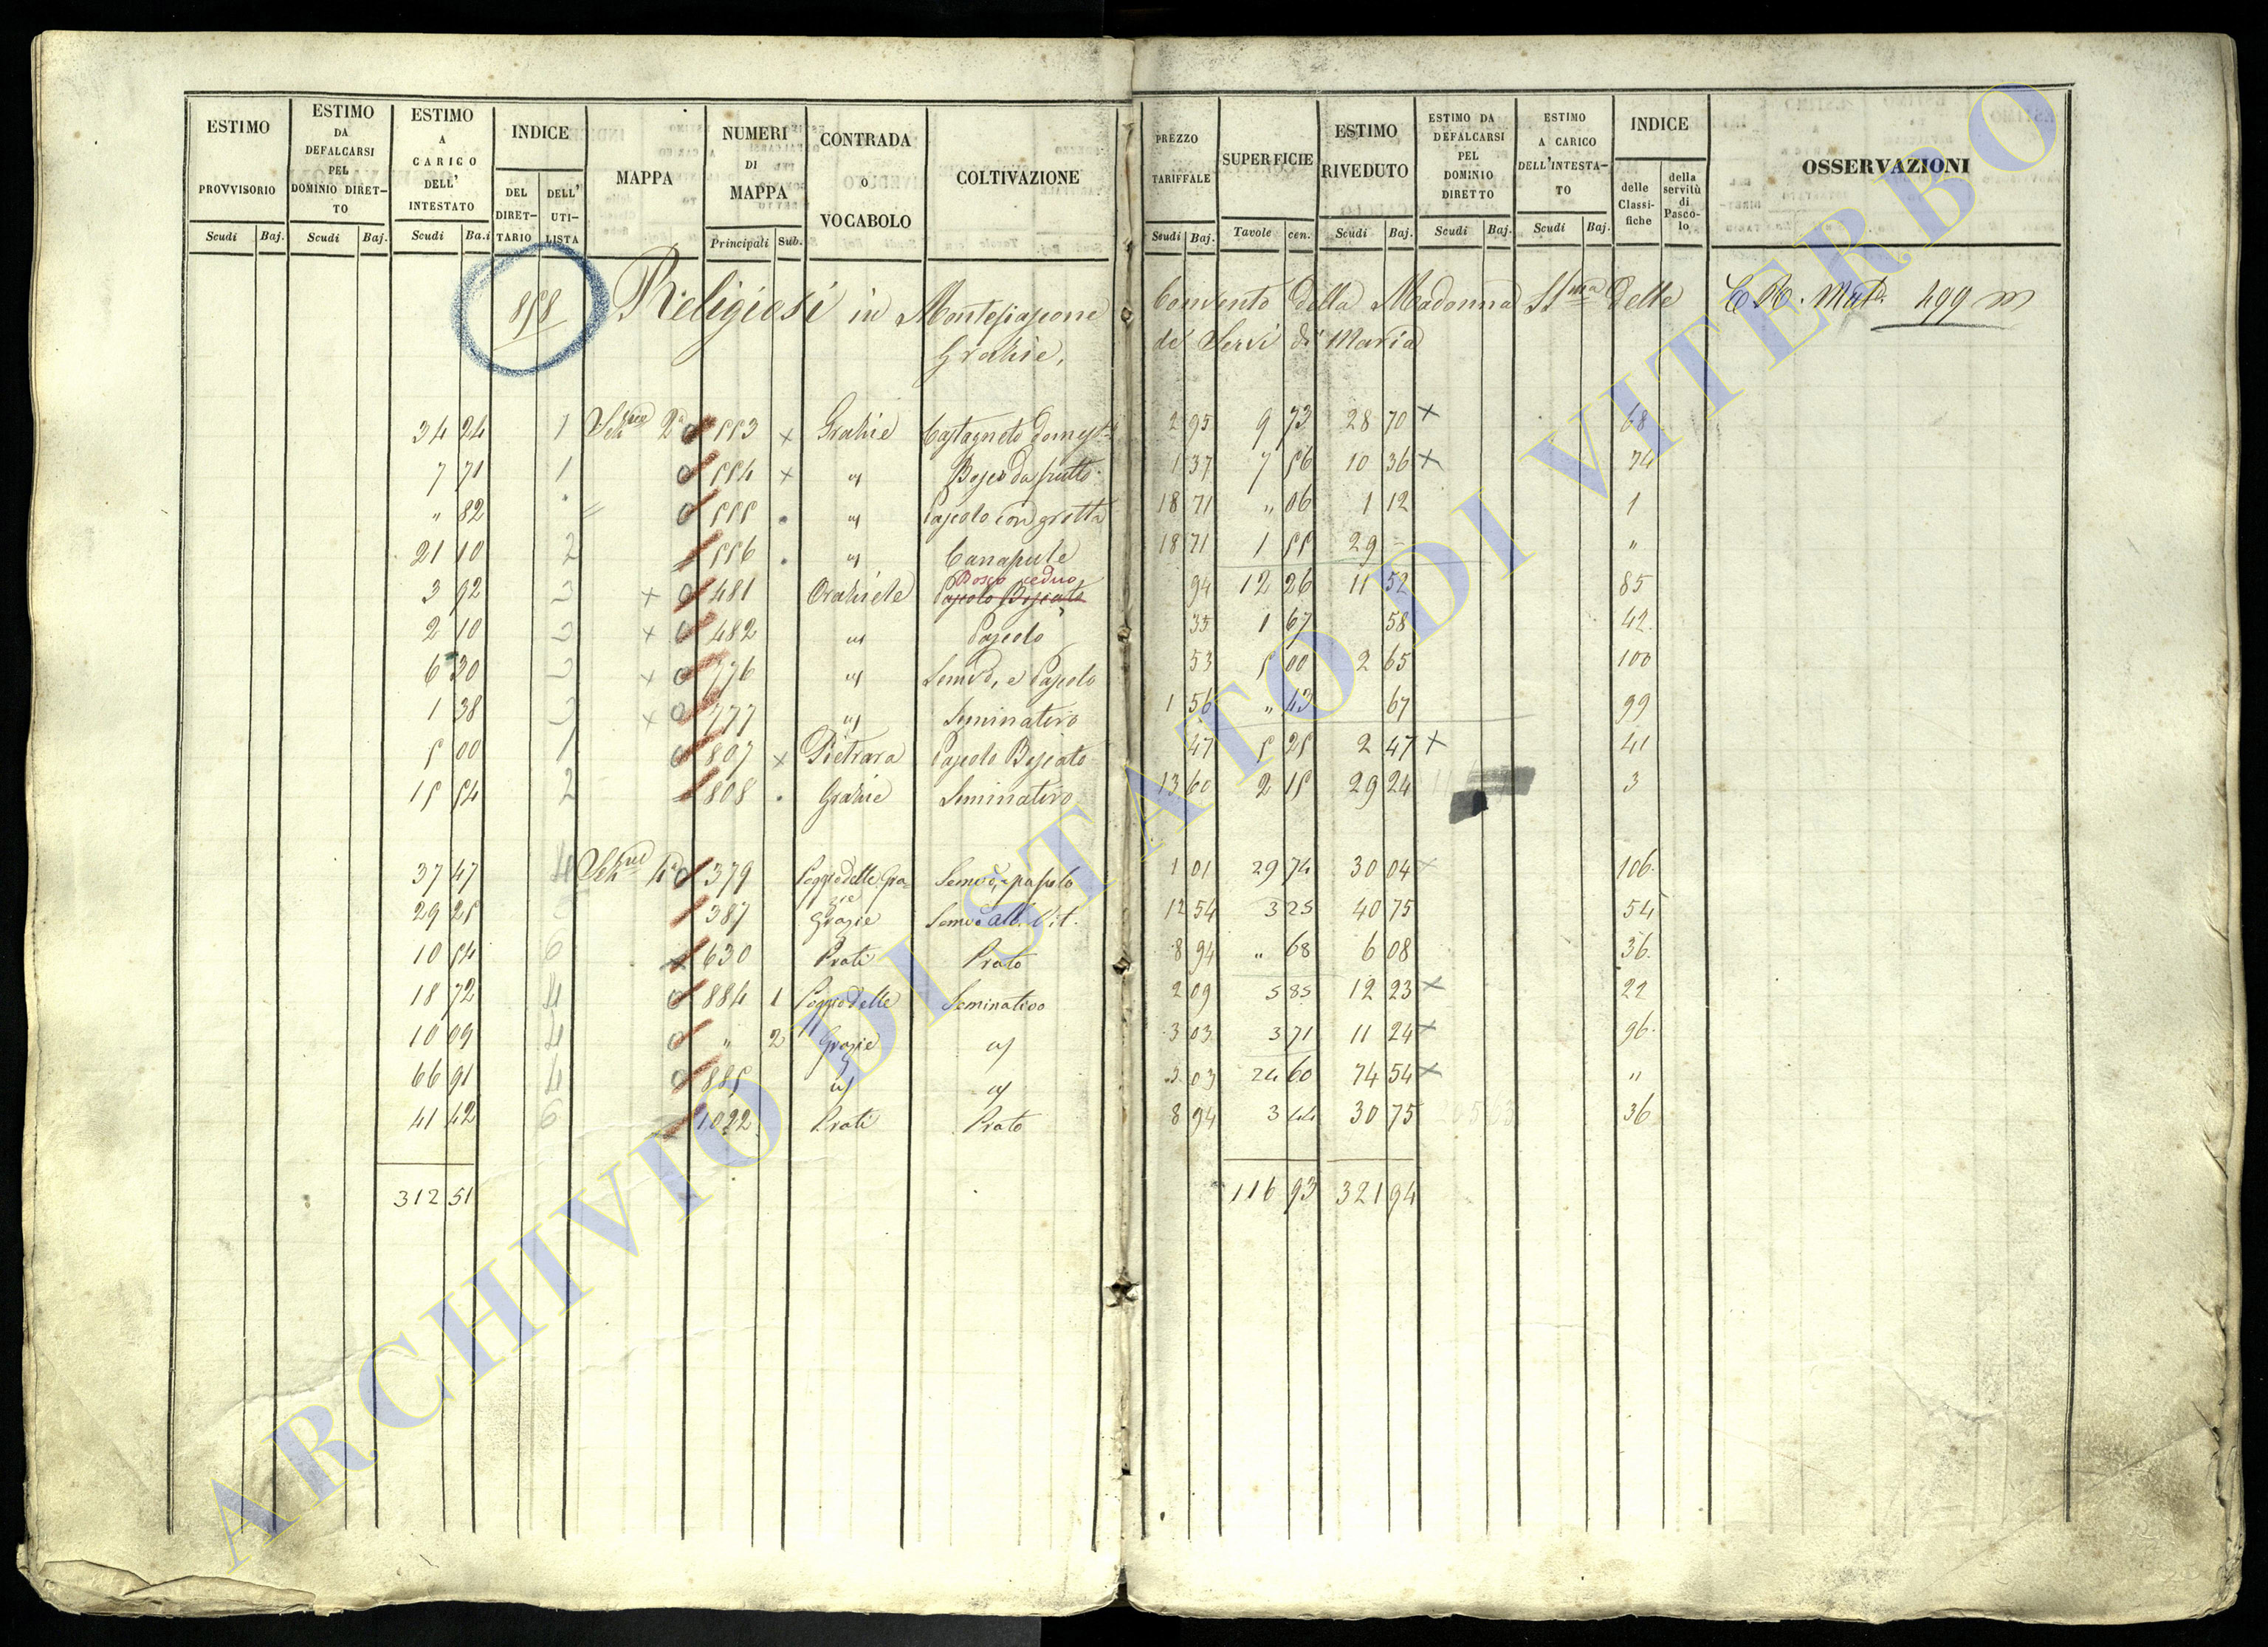 ESTIMO PROVVISORIO Scudi Baj.
ESTIMO DA DEFALCARSI PEL DOMINIO DIRET-TO Scudi Baj.
ESTIMO A CARICO DELL' INTESTATO Scudi Ba.i
INDICE DEL DIRET-TARIO DELL' UTI-LISTA
MAPPA
NUMERI DI MAPPA Principali Sub.
CONTRADA O VOCABOLO
COLTIVAZIONE
PREZZO TARIFFALE Scudi Baj.
SUPERFICIE Tavole cen.
ESTIMO RIVEDUTO Scudi Baj.
ESTIMO DA DEFALCARSI PEL DOMINIO DIRETTO Scudi Baj.
ESTIMO A CARICO DELL'INTESTA-TO Scudi Baj.
INDICE delle Classi-fiche della servitù di Pasco-lo
OSSERVAZIONI
858 Religiosi in Montefiascone Convento della Madonna SSma delle 499
Grazie, de' Servi di Maria
34 24 1 2a 553 x Grazie Castagneto domest. 2 95 9 73 28 70 x 68
7 71 1 554 x Bosco da frutto 1 37 7 56 10 36 x 74
" 82 555 Pascolo con grotta 18 71 " 06 1 12 1
21 10 2 556 Canapule 18 71 1 55 29 - "
3 92 3 x 481 Pascolo Boscato Bosco ceduo 94 12 26 11 52 85
2 10 3 x 482 Pascolo 35 1 67 58 42
6 30 3 x 776 Semvo, e Pascolo 53 5 00 2 65 100
1 38 3 x 777 Seminativo 1 56 " 43 67 99
5 00 1 807 x Pietrara Pascolo Boscato 47 5 25 2 47 x 41
15 54 2 808 Grazie Seminativo 13 60 2 15 29 24 3
37 47 4 379 Poggio delle Grazie Semvo, e pascolo 1 01 29 74 30 04 x 106
29 25 387 Grazie Semvo alb. Vit. 12 54 3 25 40 75 54
10 54 6 630 Prati Prato 8 94 " 68 6 08 36
18 72 4 884 1 Poggio delle Seminativo 2 09 5 85 12 23 x 22
10 09 4 " 2 Grazie 3 03 3 71 11 24 x 96
66 91 4 885 3 03 24 60 74 54 x "
41 42 6 1022 Prati Prato 8 94 3 44 30 75 36
312 51 116 93 321 94
ARCHIVIO DI STATO DI VITERBO